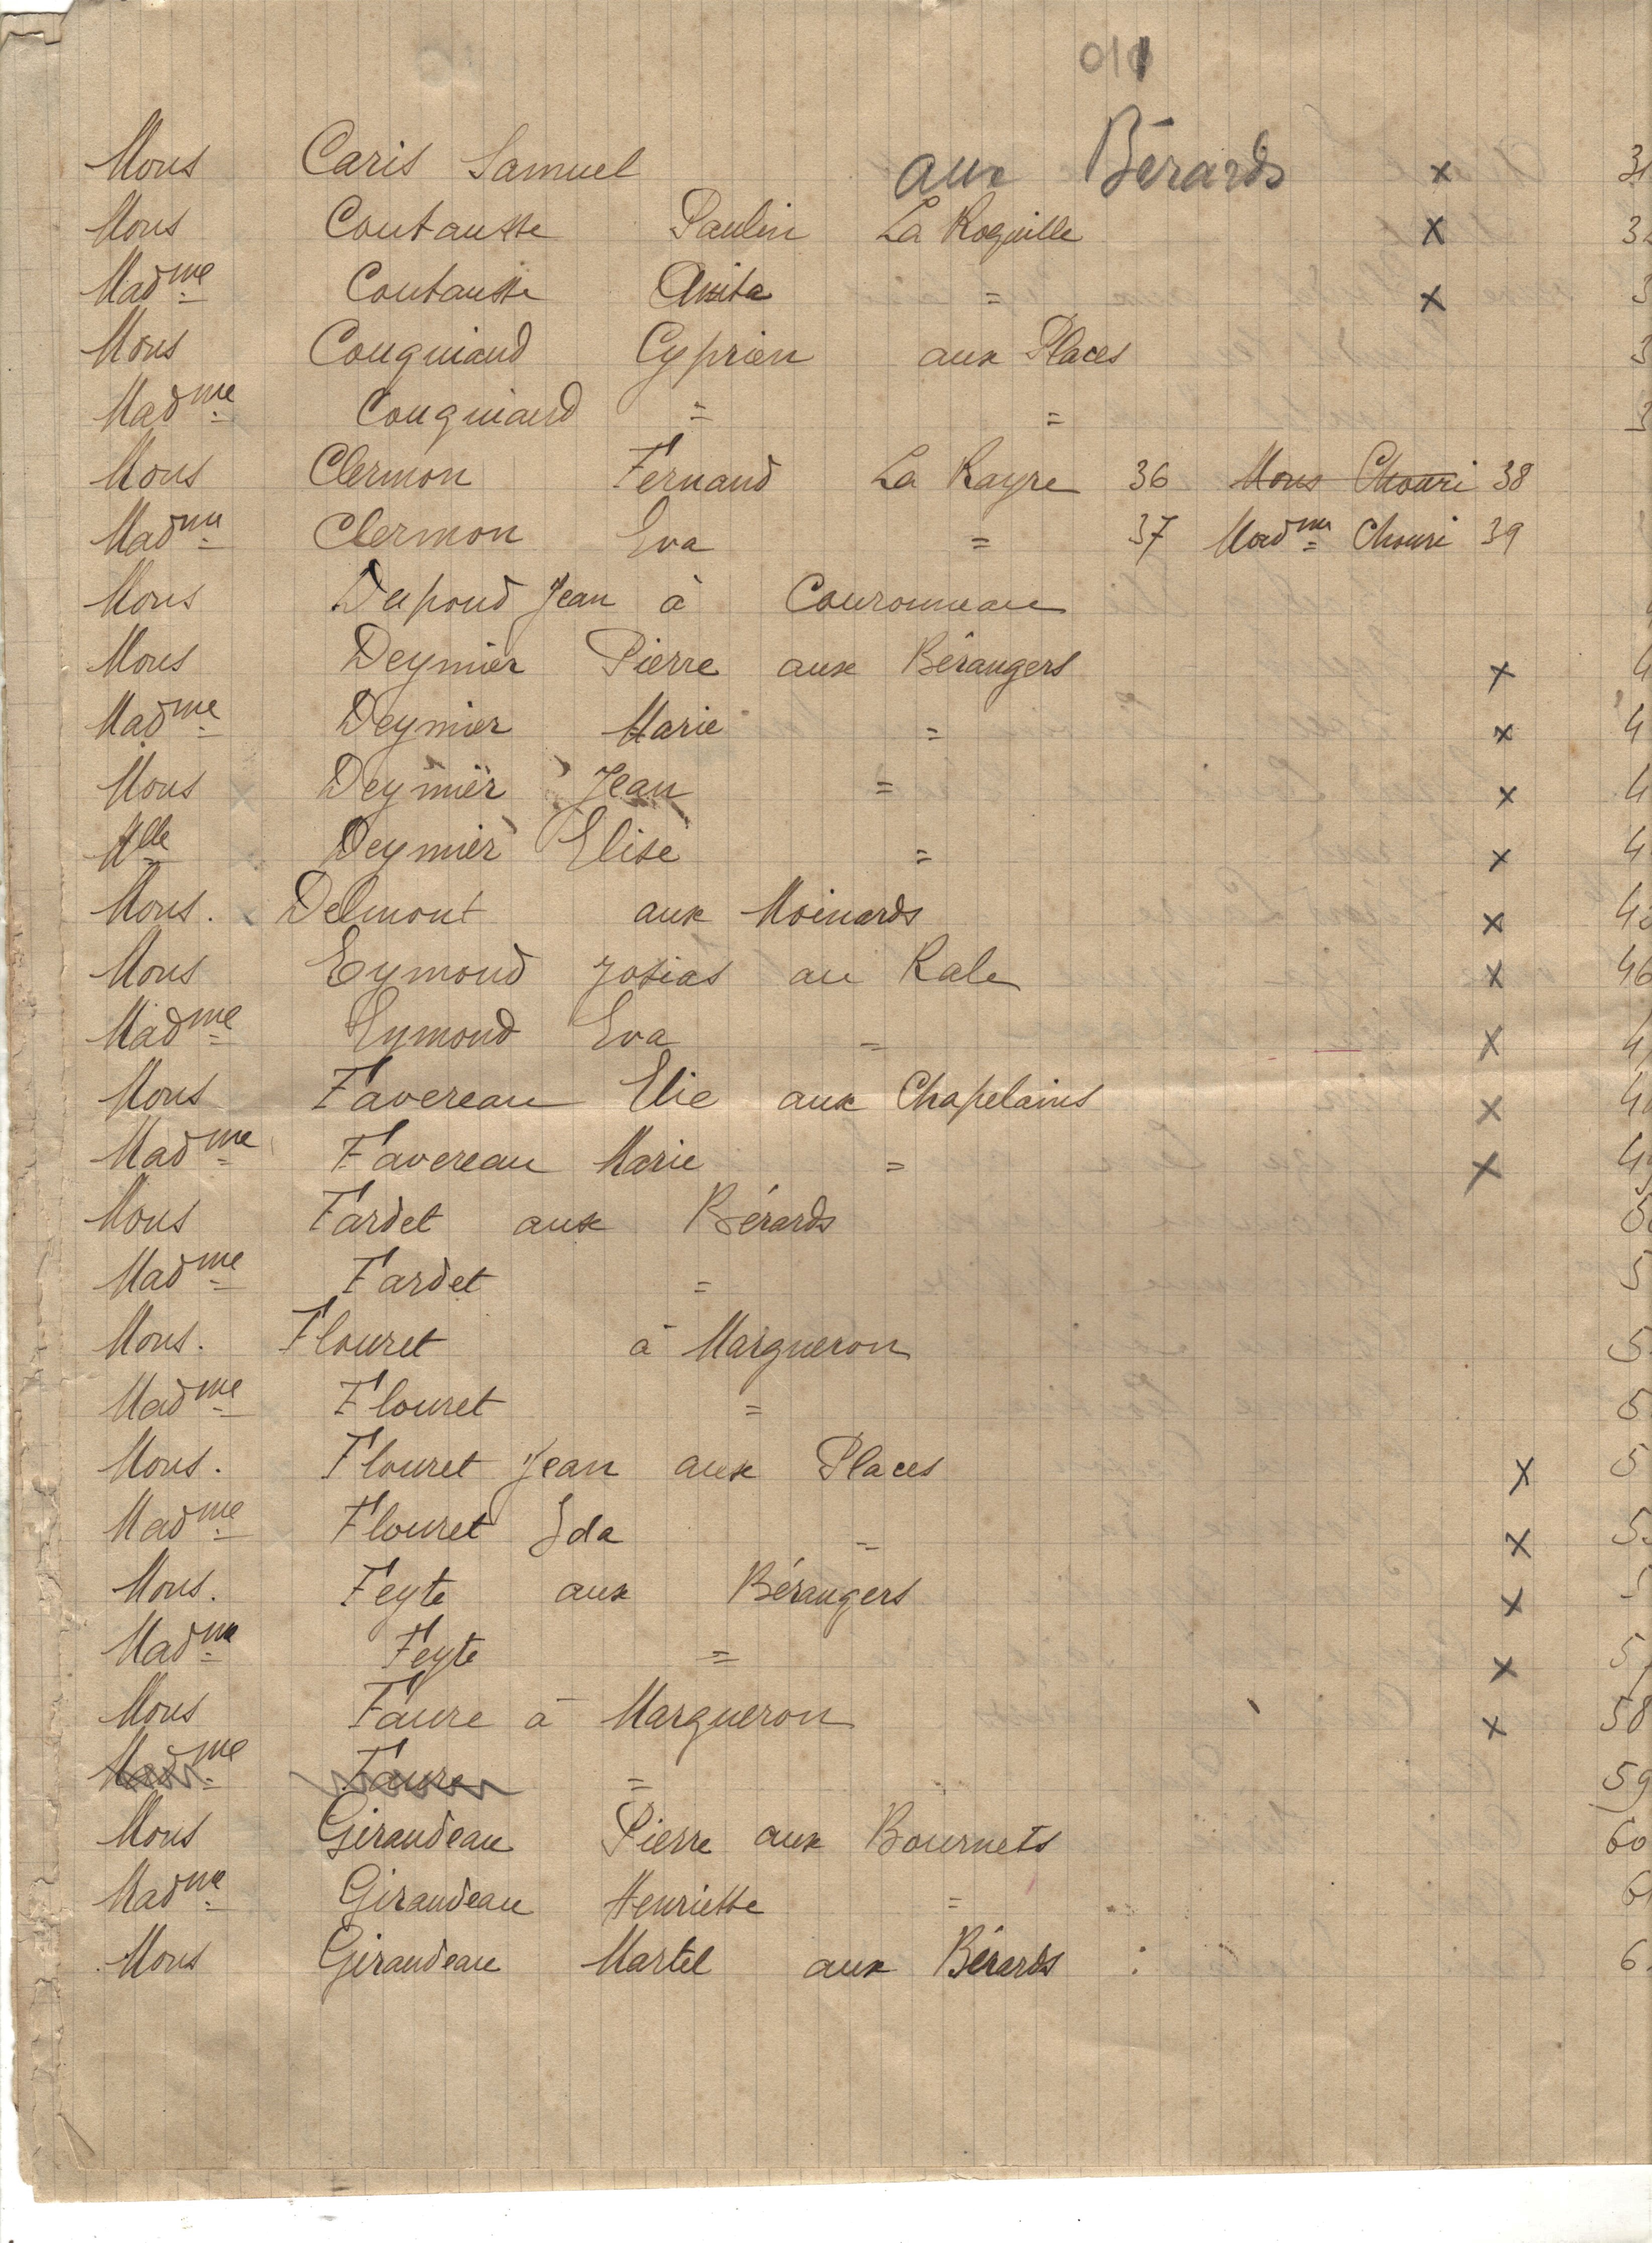 Mons Caris Samuel aux Bérards x 31
Mons Coutausse Paulin La Roquille x 32
Mad me Coutausse Anita = x 3
Mons Couguiaud Cyprien aux Places 3
Mad me Couguiaud = = 3
Mons Clermon Fernand La Rayre 36 Mons Chouri 38
Mad me Clermon Eva = 37 Mad me Chouri 39
Mons Dupond Jean à Couronneau
Mons Deymier Pierre aux Bérangers x 4
Mad me Deymier Marie = x 4
Mons Deymier Jean = x 4
Mlle Deymier Elise = x 4
Mons. Delmont aux Moinards x 45
Mons Eymond Josias au Rale x 46
Mad me Eymond Eva = x 4
Mons Favereau Elie aux Chapelains x 4
Mad me Favereau Marie = x 49
Mons Fardet aux Bérards 5
Mad me Fardet = 5
Mons. Flouret à Margueron 5
Mad me Flouret = 5
Mons. Flouret Jean aux Places x 5
Mad me Flouret Ida = x 55
Mons. Feyte aux Bérangers x 5
Mad me Feyte = x 57
Mons Faure à Margueron x 58
Mad me Faure = 59
Mons Giraudeau Pierre aux Bournets 60
Mad me Giraudeau Henriette = 6
Mons Giraudeau Martel aux Bérards : 6